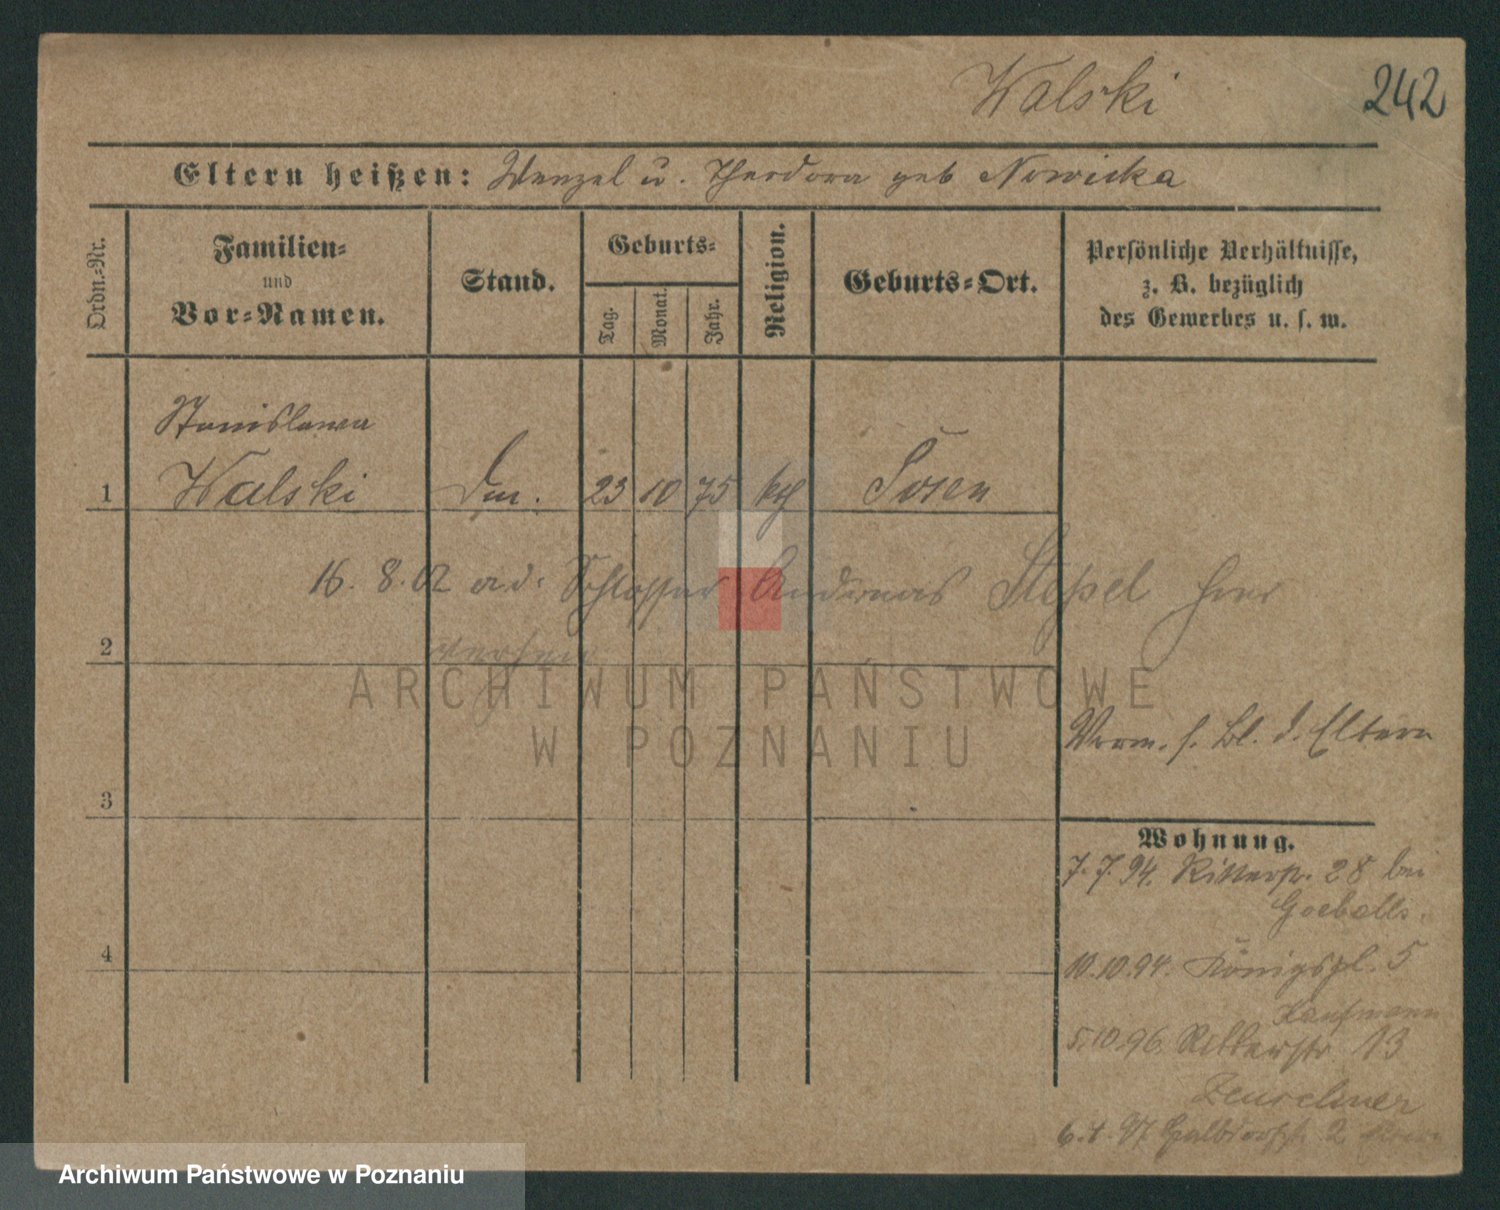 Walski
242
Eltern heißen: Wenzel u. Theodora geb Nowicka
Ordn.-Nr.
Familien-
und
Vor-Namen.
Stand.
Geburts-
Tag.
Monat.
Jahr.
Religion.
Geburts-Ort.
Persönliche Verhältnisse,
z. B. bezüglich
des Gewerbes u. s. w.
Stanislawa
1 Walski 23 10 75 kth Posen
16. 8. 02 a. d. Schlosser Andreas Stepel hier
2 verh
ARCHIWUM PAŃSTWOWE
W POZNANIU
Verm. s. Bl. d. Eltern
3
Wohnung.
7. 7. 94. Ritterstr. 28 bei
4
10.10.94. Königspl. 5
Kaufmann
5.10.96. Ritterstr 13
6.4.97. Halbdorfstr. 2
Archiwum Państwowe w Poznaniu